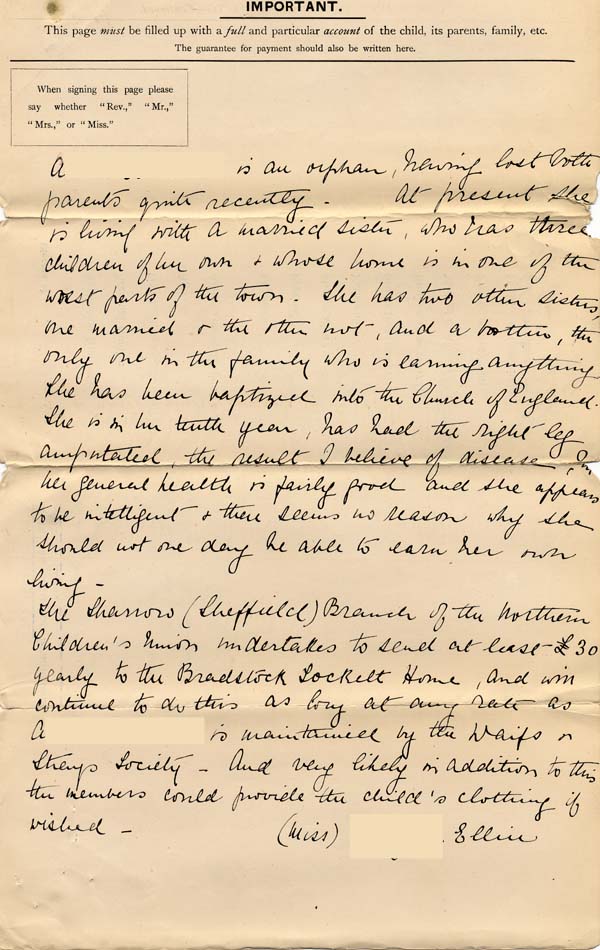 IMPORTANT.
This page must be filled up with a full and particular account of the child, its parents, family, etc.
The guarantee for payment should also be written here.
When signing this page please
say whether "Rev.," "Mr.,"
"Mrs.," or "Miss."
A is an orphan, having lost both
parents quite recently - At present she
is living with a married sister, who has three
children of her own & whose home is in one of the
worst parts of the town. She has two other sisters,
one married & the other not, and a brother, the
only one in the family who is earning anything.
She has been baptized into the Church of England.
She is in her tenth year, has had the right leg
amputated, the result I believe of disease,
her general health is fairly good and she appears
to be intelligent & there seems no reason why she
should not one day be able to earn her own
living -
The Sharrow (Sheffield) Branch of the Northern
Children's Union undertakes to send at least £30
yearly to the Bradstock Lockett Home, and will
continue to do this as long at any rate as
A is maintained by the Waifs &
Strays Society - And very likely in addition to this
the members could provide the child's clothing if
wished - (Miss) . Ellin